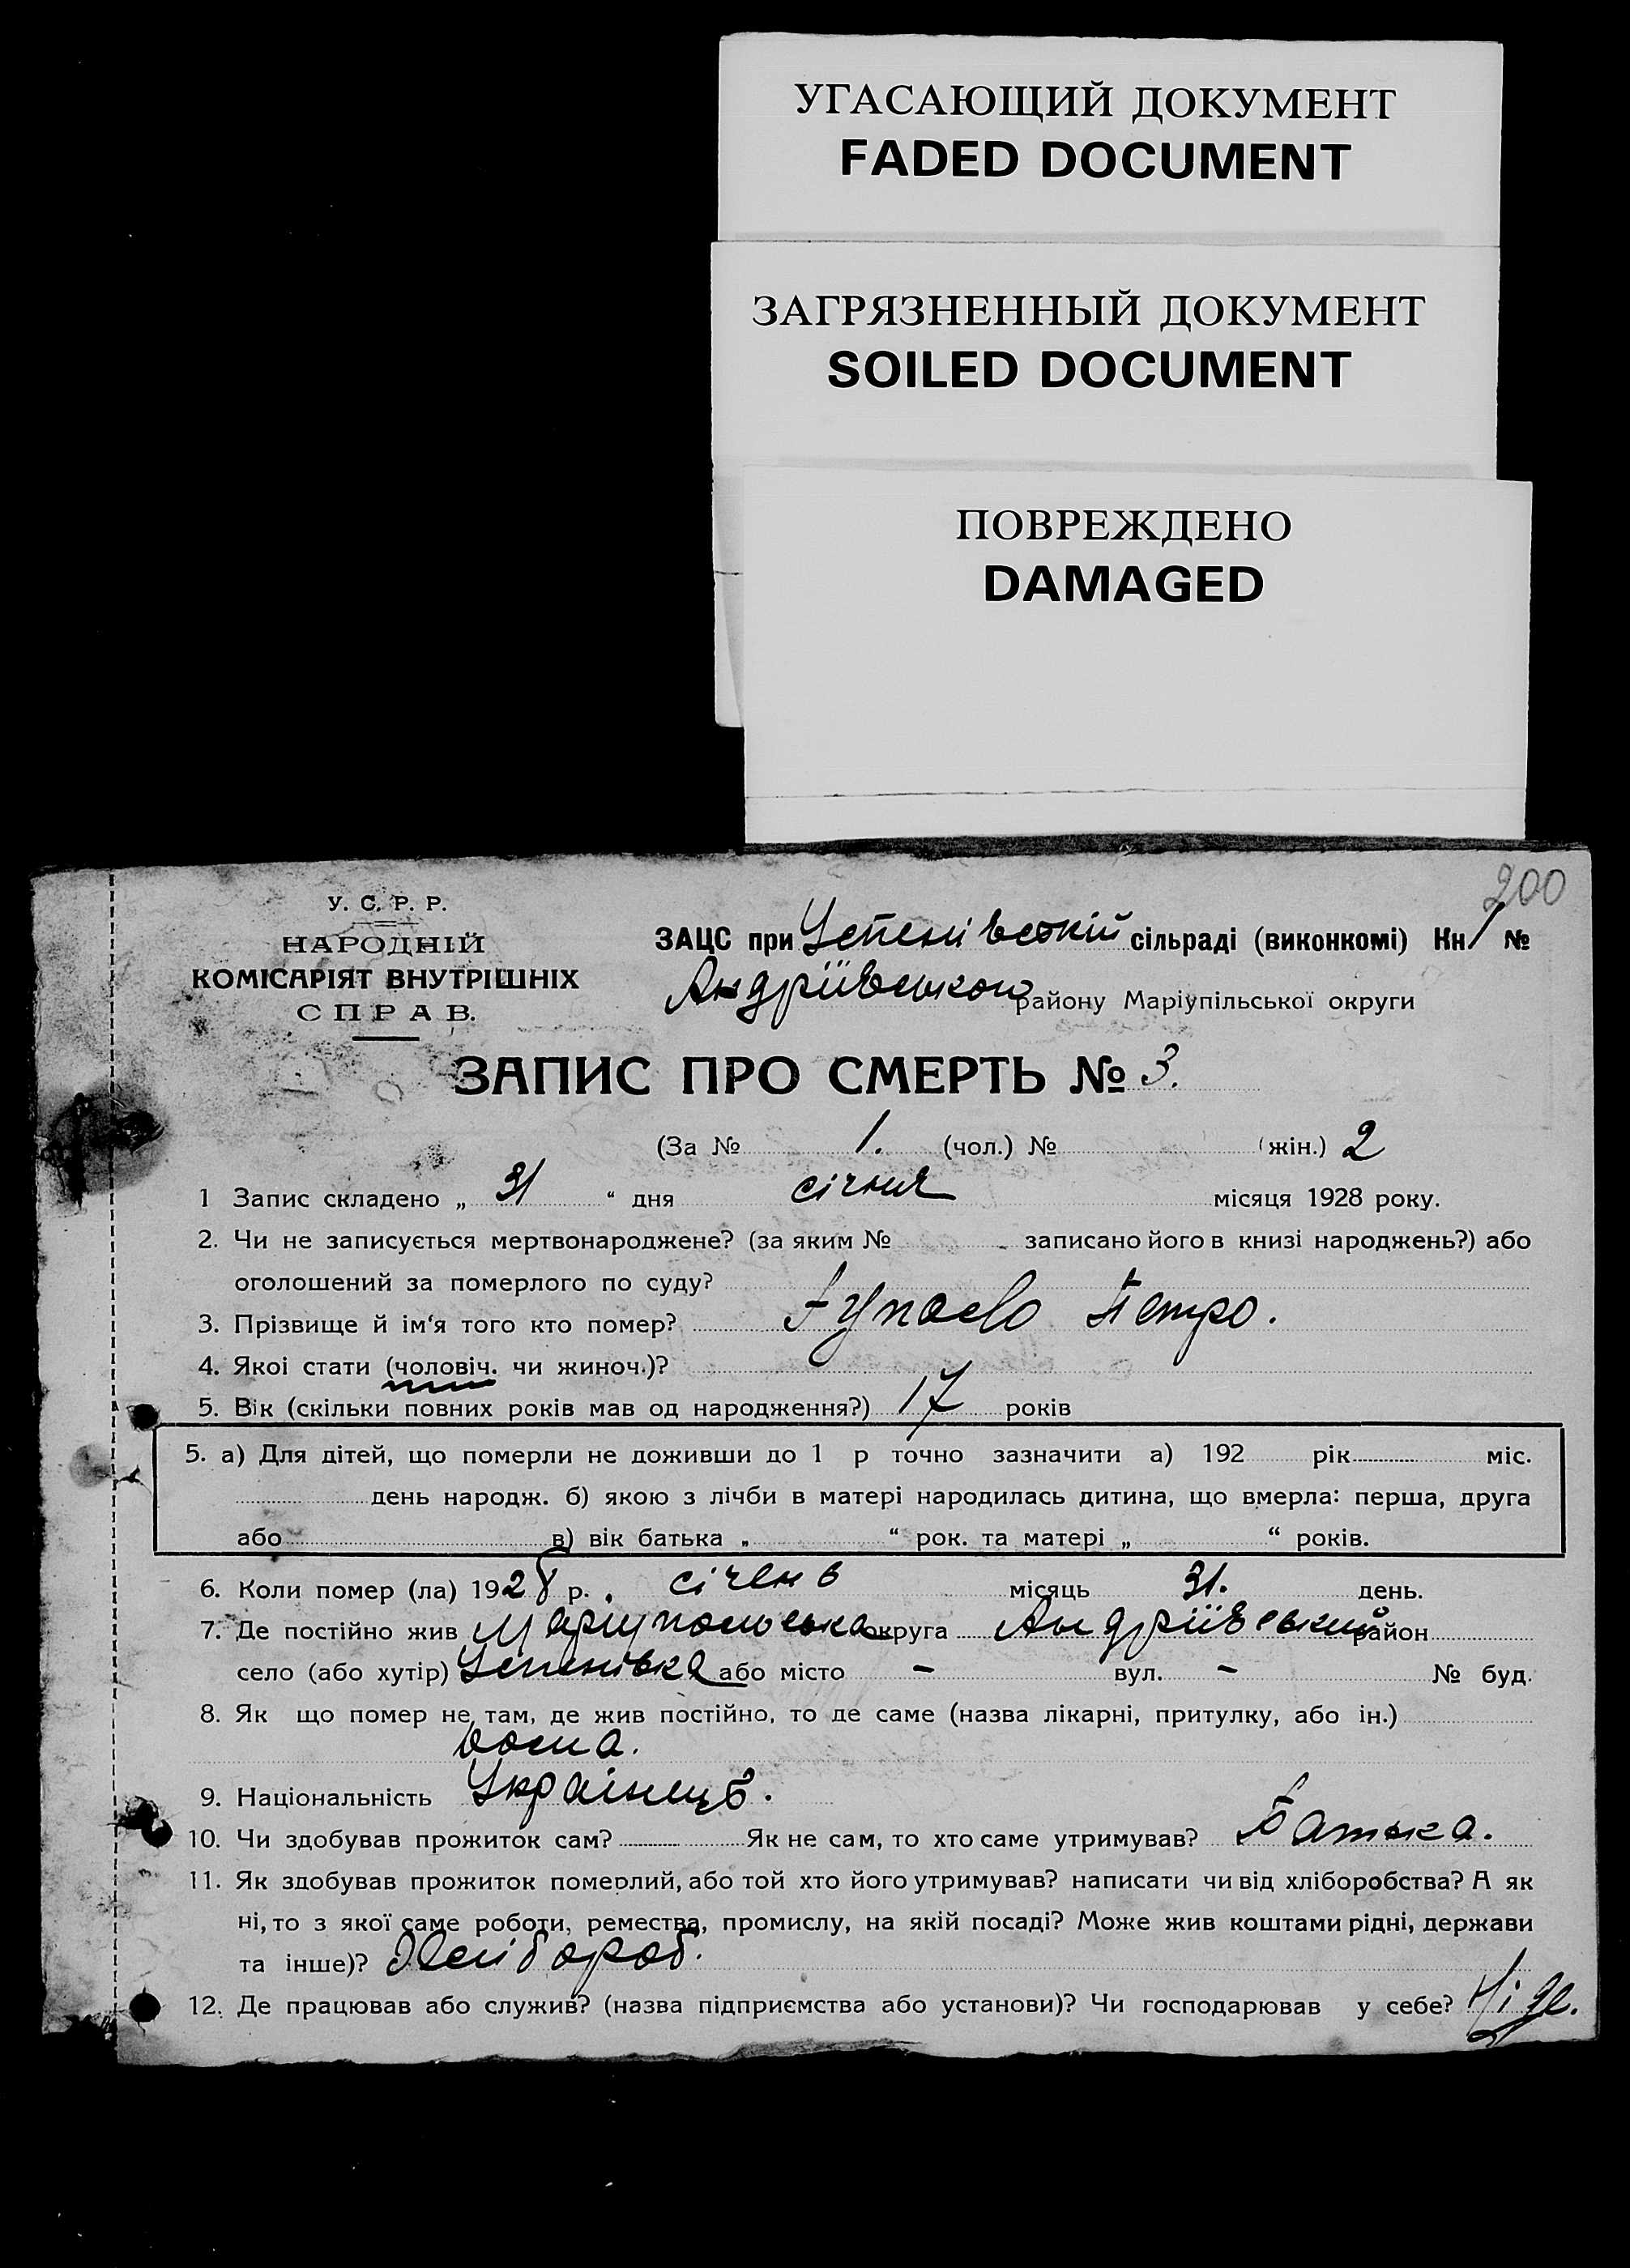 УГАСАЮЩИЙ ДОКУМЕНТ
FADED DOCUMENT
ЗАГРЯЗНЕННЫЙ ДОКУМЕНТ
SOILED DOCUMENT
ПОВРЕЖДЕНО
DAMAGED
200
У. С. Р. Р.
НАРОДНІЙ
КОМІСАРІЯТ ВНУТРІШНІХ
СПРАВ.
ЗАЦС при Успенівській сільраді (виконкомі) Кн 1 №
Андріївського району Маріупільської округи
ЗАПИС ПРО СМЕРТЬ № 3.
(За № 1. (чол.) № (жін.) 2
1 Запис складено „ 31 “ дня січня місяця 1928 року.
2. Чи не записується мертвонароджене? (за яким № записано його в книзі народжень?) або
оголошений за померлого по суду?
3. Прізвище й ім'я того кто помер? Петро.
4. Якоі стати (чоловіч. чи жиноч.)?
5. Вік (скільки повних років мав од народження?) 17 років
5. а) Для дітей, що померли не доживши до 1 р точно зазначити а) 192 рік міс.
день народж. б) якою з лічби в матері народилась дитина, що вмерла: перша, друга
або в) вік батька „ “ рок. та матері „ “ років.
6. Коли помер (ла) 1928 р. січень місяць 31. день.
7. Де постійно жив Маріупольська округа Андріївський район
село (або хутір) Успенівка або місто – вул. – № буд.
8. Як що помер не там, де жив постійно, то де саме (назва лікарні, притулку, або ін.)
дома.
9. Національність Українець.
10. Чи здобував прожиток сам? Як не сам, то хто саме утримував? Батька.
11. Як здобував прожиток померлий, або той хто його утримував? написати чи від хліборобства? А як
ні, то з якої саме роботи, ремества, промислу, на якій посаді? Може жив коштами рідні, держави
та інше)? Хлібороб.
12. Де працював або служив? (назва підприємства або установи)? Чи господарював у себе? Ніде.